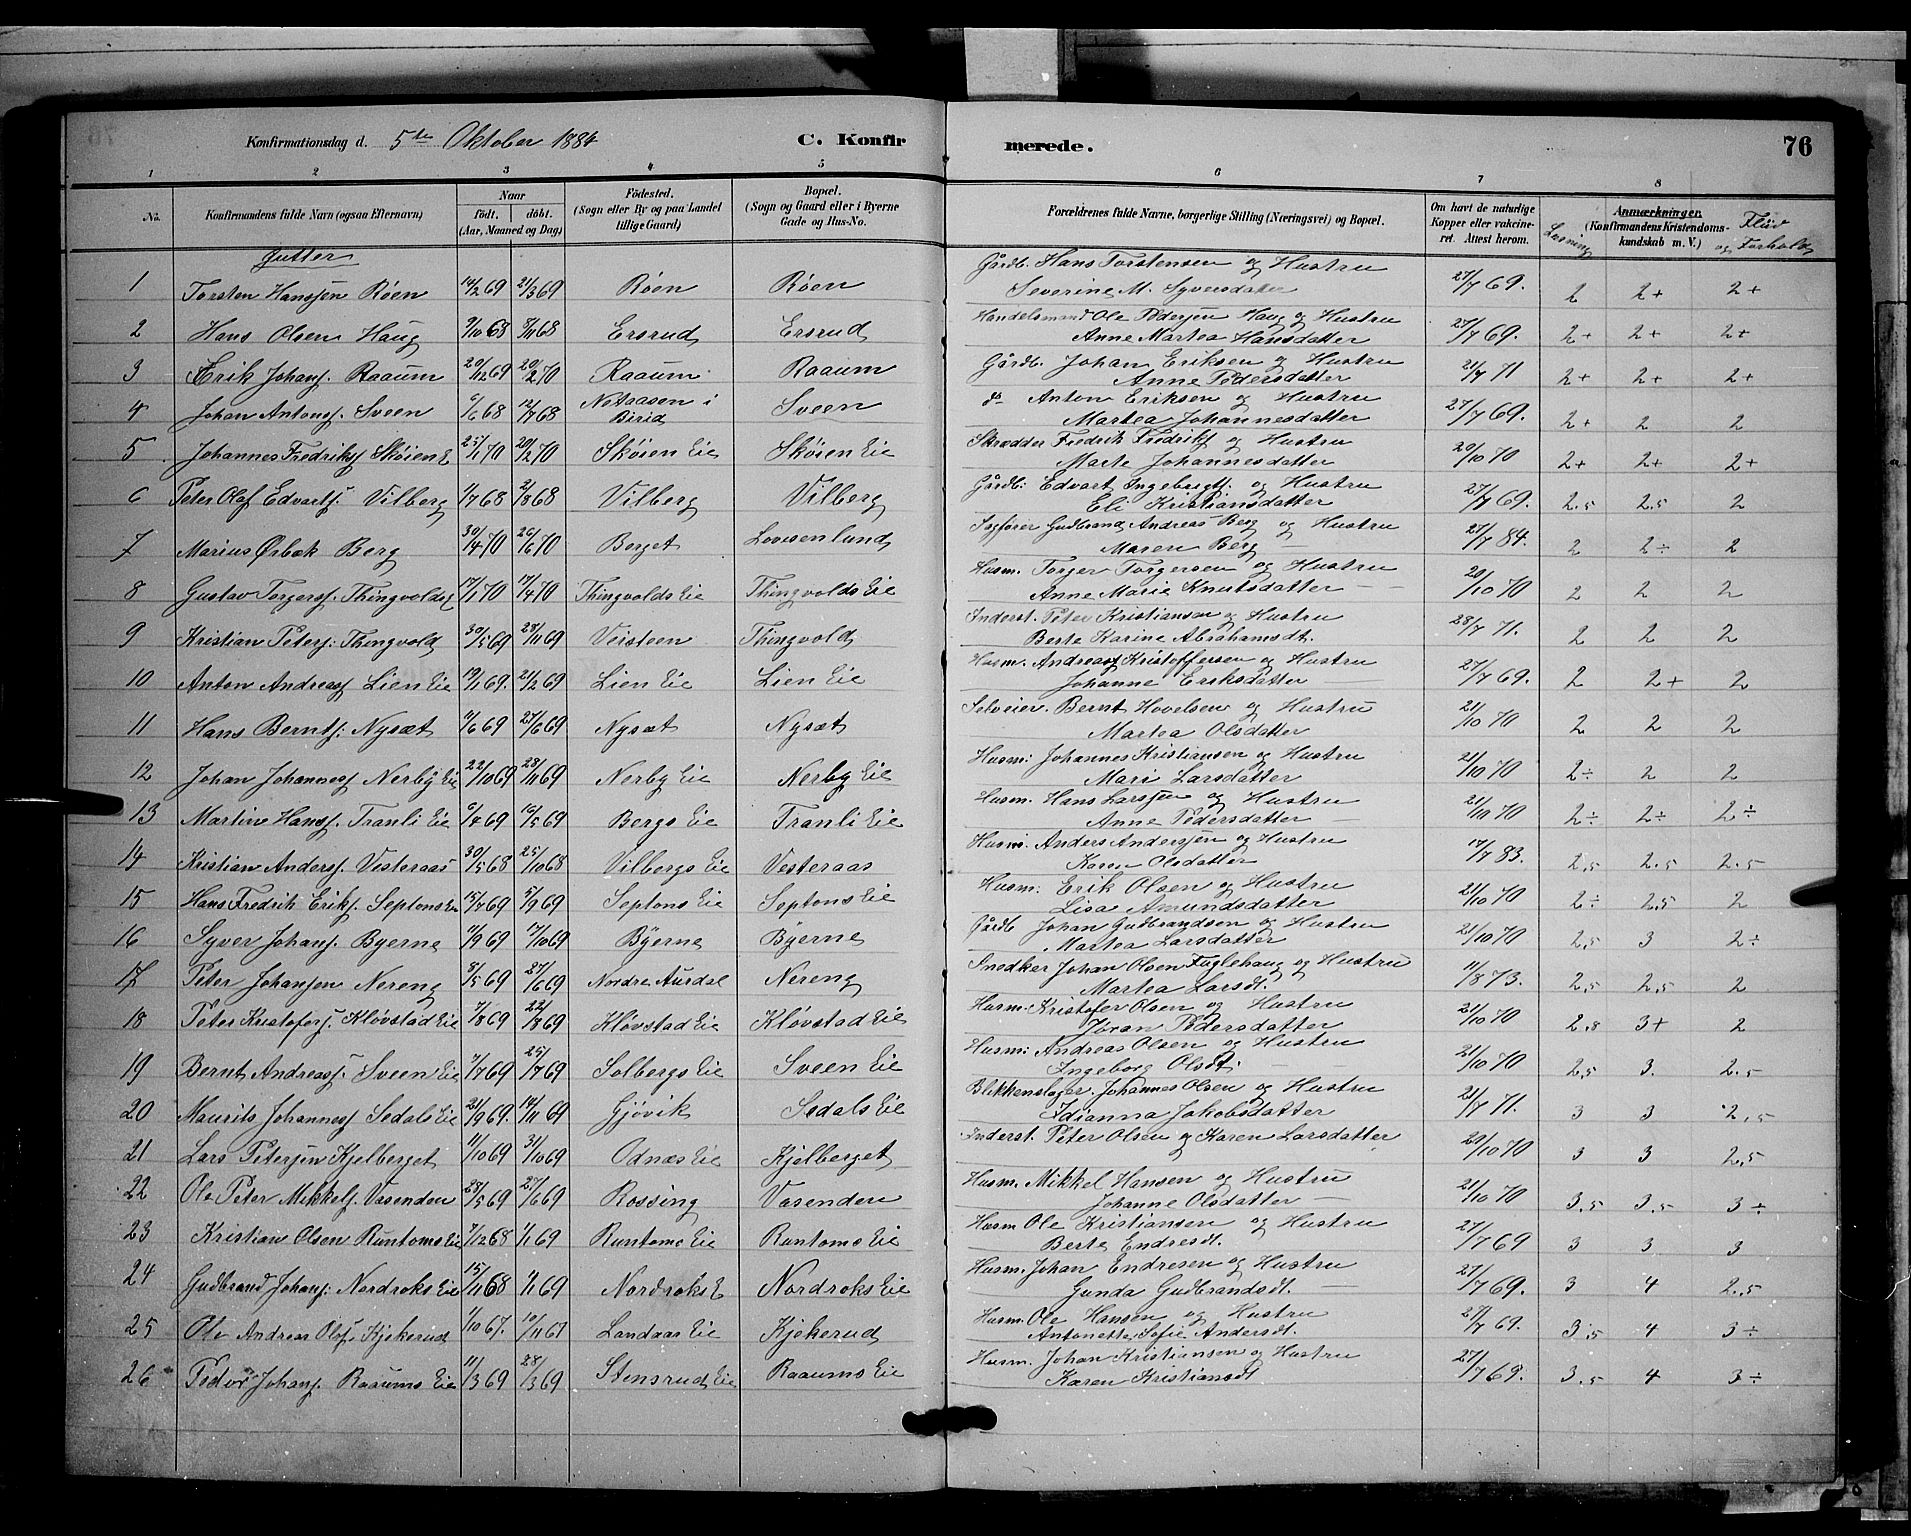 Konfirmationsdag d. 5te Oktober 1884 C. Konfirmerede. 76
1 2 3 4 5 6 7 8
No. Konfirmandens fulde Navn (ogsaa Efternavn) Naar født. døbt. (Aar, Maaned og Dag) Fødested. (Sogn eller By og paa Landet tillige Gaard) Bopæl. (Sogn og Gaard eller i Byerne Gade og Hus-No. Forældrenes fulde Navne, borgerlige Stilling (Næringsvei) og Bopæl. Om havt de naturlige Kopper eller vakcineret. Attest herom. Læsning Anmærkninger (Konfirmandens Kristendomskundskab m. V.) Flid og Forhold
Gutter
1 Torsten Hanssen Røen 14/2 69 21/3 69 Røen Røen Gårdb. Hans Torstensen og Hustru Severine M. Syversdatter 27/7 69. 2 2+ 2+
2 Hans Olsen Haug 9/10 68 8/11 68 Ersrud Ersrud Handelsmand Ole Pedersen Haug og Hustru Anne Martea Hansdatter 27/7 69. 2+ 2+ 2+
3 Erik Johans. Raaum 20/12 69 20/2 70 Raaum Raaum Gårdb. Johan Eriksen og Hustru Anne Pedersdatter 21/7 71 2+ 2+ 2+
4 Johan Antons. Sveen 6/6 68 12/7 68 Netaasen i Birid Sveen do Anton Eriksen og Hustru Martea Johannesdatter 27/7 69. 2+ 2 2
5 Johannes Fredriks Skøien E 25/1 70 20/2 70 Skøien Eie Skøien Eie Skrædder Fredrik Fredriks og Hustru Marte Johannesdatter 20/10 70 2+ 2+ 2+
6 Peter Olaf Edvarts. Vilberg 1/7 68 2/8 68 Vilberg Vilberg Gårdb. Edvart Ingebrigts. og Hustru Eli Kristiansdatter 27/7 69. 2.5 2.5 2
7 Marius Ørbæk Berg 30/4 70 26/6 70 Berget Lovisenlund Sagfører Gudbrand Andreas Berg og Hustru Maren Berg 27/7 84. 2 2÷ 2
8 Gustav Torgerss. Thingvolds E 17/1 70 17/4 70 Thingvolds Eie Thingvolds Eie Husm. Torger Torgersen og Hustru Anne Marie Knutsdatter 20/10 70 2 2 2
9 Kristian Peters. Thingvold 30/5 69 28/11 69 Veisteen Thingvold Inderst. Peter Kristiansen og Hustru Berte Karine Abrahamsdt. 28/7 71. 2 2 2
10 Anton Andreass Lien Eie 19/1 69. 21/2 69 Lien Eie Lien Eie Husm. Andreas Kristoffersen og Hustru Johanne Eriksdatter 27/7 69. 2 2+ 2
11 Hans Bernts. Nysæt 11/6 69 27/6 69 Nysæt Nysæt Selveier. Bernt Hovelsen og Hustru Martea Olsdatter 21/10 70 2 2 2
12 Johan Johanness Nerby Eie 22/10 69 28/11 69 Nerby Eie Nerby Eie Husm: Johannes Kristiansen og Hustru Mari Larsdatter 21/10 70 2÷ 2 2
13 Martin Hanss. Tranli Eie 6/4 69 16/5 69 Bergs Eie Tranli Eie Husm. Hans Larssen og Hustru Anne Pedersdatter 21/10 70 2÷ 2÷ 2÷
14 Kristian Anderss. Vesteraas 30/5 68 25/10 68 Vilbergs Eie Vesteraas Husm: Anders Anderssen og Hustru Karen Olsdatter 17/7 83. 2,5 2.5 2.5
15 Hans Fredrik Eriks. Septons Eie 15/7 69 5/9 69 Septons Eie Septons Eie Husm: Erik Olsen og Hustru Lisa Amundsdatter 21/10 70 2÷ 2,5 2
16 Syver Johans. Byerne 11/9 69 17/10 69 Byerne Byerne Gårdb Johan Gudbrandsen og Hustru Martea Larsdatter 21/10 70 2,5 3 2÷
17 Peter Johansen Nereng 8/5 69 27/6 69 Nordre Aurdal Nereng Snedker Johan Olsen Fuglehaug og Hustru Martea Larsdt. 11/8 73. 2,5 2,5 2
18 Peter Kristofers. Kløvstad Eie 7/8 69 22/8 69 Kløvstad Eie Kløvstad Eie Husm. Kristofer Olsen og Hustru Joran Pedersdatter 21/10 70 2,8 3+ 2
19 Bernt Andreass. Sveen Eie 7/7 69 25/7 69 Solbergs Eie Sveen Eie Husm: Andreas Olsen og Hustru Ingeborg Olsdt. 21/10 70 2,5 3. 2.5
20 Maurits Johanness Sedals Eie 21/9 69. 14/11 69 Gjøvik Sedals Eie Blikkenslager Johannes Olsen og Hustru Idianna Jakobsdatter 21/7 71. 3 3 2,5
21 Lars Petersen Kjelberget 11/10 69 31/10 69 Odnæs Eie Kjelberget Inderst. Peter Olsen og Karen Larsdatter 20/10 70 3 3 2,5
22 Ole Peter Mikkels. Vasenden 28/5 69 27/6 69 Rossing Vasenden Husm. Mikkel Hansen og Hustru Johanne Olsdatter 21/10 70 3,5 3,5 3÷
23 Kristian Olsen Runtoms Eie 7/12 68 1/1 69 Runtoms Eie Runtoms Eie Husm Ole Kristiansen og Hustru Berte Endresdt. 27/7 69 3 3 3
24 Gudbrand Johans: Nordroks Eie 15/11 68 1/1 69 Nordroks E Nordroks Eie Husm. Johan Endresen og Hustru Gunda Gudbrandsdt. 27/7 69. 3 4 2.5
25 Ole Andreas Ols. Kjekerud 1/10 67. 10/11 67 Landaas Eie Kjekerud Husm. Ole Hansen og Hustru Antonette Sofie Andersdt. 27/7 69. 3,5 4 3÷
26 Peder Johans. Raaums Eie 11/3 69 28/3 69 Stensrud Eie Raaums Eie Husm. Johan Kristiansen og Hustru Karen Kristiansdt 27/7 69. 3,5 4 3÷